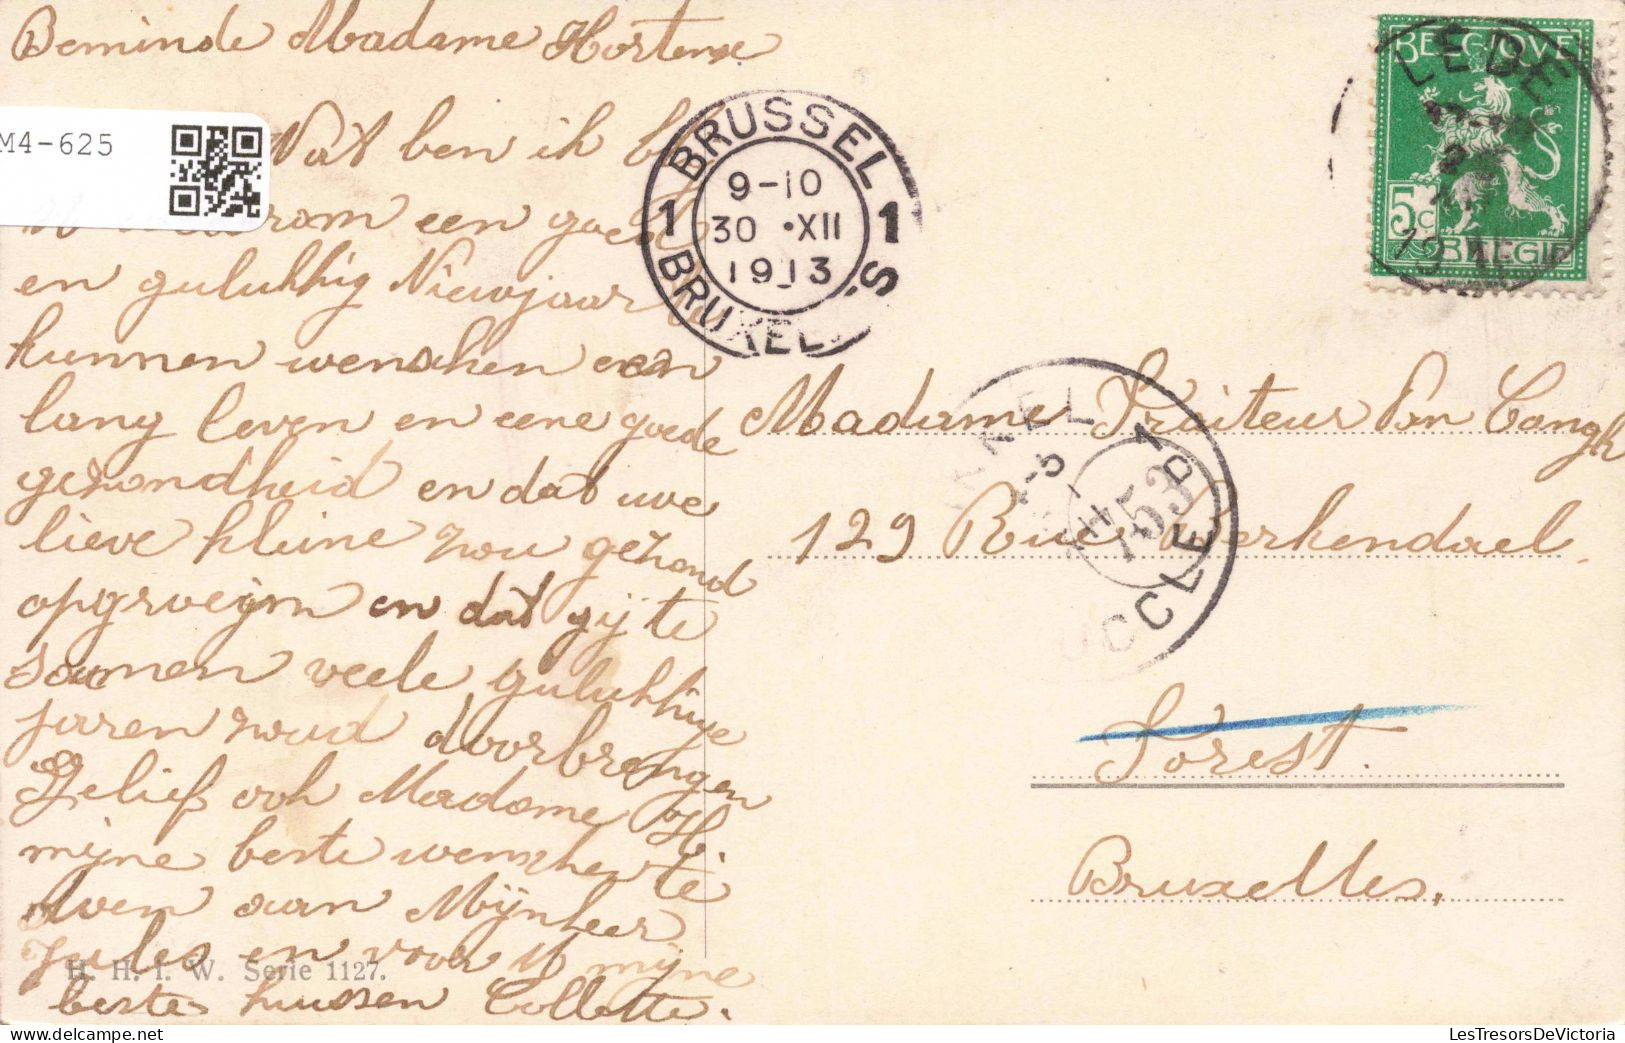 Beminde Madame Hortense
M4-625
Wat ben ik bl
U wederom een goed
en gulukkig Nieuwjaar te
kunnen wenschen een
lang leven en eene goede
gezondheid en dat uwe
lieve kleine zou gezond
opgroeien en dat gij te
samen veele gulukkige
jaren zoud doorbrengen
Gelief ook Madame H.
mijne beste wenschen te
doen aan Mijnheer
Jules en voor U mijne
beste kussen Collette.
H. H. I. W. Serie 1127.
BRUSSEL
1 9-10 1
30 •XII
1913
BRUXELLES
BELGIQUE
5c
BELGIË
LEDE
UKKEL 1
UCCLE 1
153
Madame Traiteur Van Cangh
129 Rue Berkendael
Forest.
Bruxelles.
LesTresorsDeVictoria.com